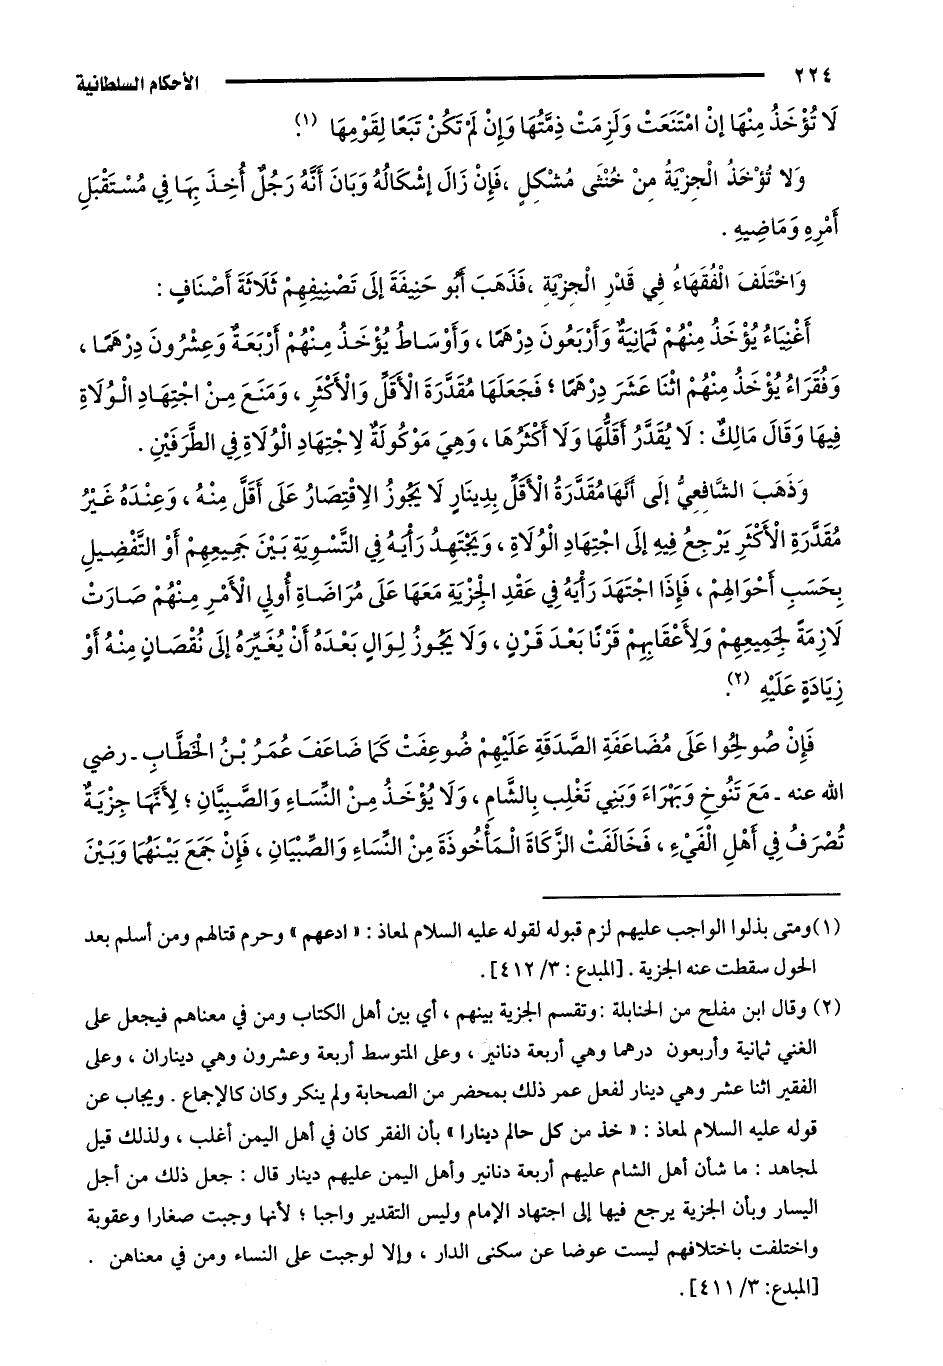 ٢٢٤ الأحكام السلطانية
لَا تُؤْخَذُ مِنْهَا إنْ امْتَنَعَتْ وَلَزِمَتْ ذِمَّتُهَا وَإِنْ لَمْ تَكُنْ تَبَعًا لِقَوْمِهَا (١).
وَلا تُؤْخَذُ الْجِزْيَةُ مِنْ خُنْثَى مُشْكِلٍ ،فَإِنْ زَالَ إشْكَالُهُ وَبَانَ أَنَّهُ رَجُلٌ أُخِذَ بِهَا فِي مُسْتَقْبَلِ
أَمْرِهِ وَمَاضِيهِ .
وَاخْتَلَفَ الْفُقَهَاءُ فِي قَدْرِ الْجِزْيَةِ ،فَذَهَبَ أَبُو حَنِيفَةَ إلَى تَصْنِيفِهِمْ ثَلَاثَةَ أَصْنَافٍ :
أَغْنِيَاءُ يُؤْخَذُ مِنْهُمْ ثَمَانِيَةٌ وَأَرْبَعُونَ دِرْهَمًا ، وَأَوْسَاطُ يُؤْخَذُ مِنْهُمْ أَرْبَعَةٌ وَعِشْرُونَ دِرْهَمًا ،
وَفُقَرَاءُ يُؤْخَذُ مِنْهُمْ اثْنَا عَشَرَ دِرْهَمًا ؛ فَجَعَلَهَا مُقَدَّرَةَ الْأَقَلِّ وَالْأَكْثَرِ ، وَمَنَعَ مِنْ اجْتِهَادِ الْوُلَاةِ
فِيهَا وَقَالَ مَالِكٌ : لَا يُقَدَّرُ أَقَلُّهَا وَلَا أَكْثَرُهَا ، وَهِيَ مَوْكُولَةٌ لِاجْتِهَادِ الْوُلَاةِ فِي الطَّرَفَيْنِ .
وَذَهَبَ الشَّافِعِيُّ إلَى أَنَّهَا مُقَدَّرَةُ الْأَقَلِّ بِدِينَارٍ لَا يَجُوزُ الِاقْتِصَارُ عَلَى أَقَلَّ مِنْهُ ، وَعِنْدَهُ غَيْرُ
مُقَدَّرَةِ الْأَكْثَرِ يَرْجِعُ فِيهِ إلَى اجْتِهَادِ الْوُلَاةِ ، وَيَجْتَهِدُ رَأْيَهُ فِي التَّسْوِيَةِ بَيْنَ جَمِيعِهِمْ أَوْ التَّفْضِيلِ
بِحَسَبِ أَحْوَالِهِمْ ، فَإِذَا اجْتَهَدَ رَأْيَهُ فِي عَقْدِ الْجِزْيَةِ مَعَهَا عَلَى مُرَاضَاةِ أُولِي الْأَمْرِ مِنْهُمْ صَارَتْ
لَازِمَةً لِجَمِيعِهِمْ وَلِأَعْقَابِهِمْ قَرْنًا بَعْدَ قَرْنٍ ، وَلَا يَجُوزُ لِوَالٍ بَعْدَهُ أَنْ يُغَيِّرَهُ إلَى نُقْصَانٍ مِنْهُ أَوْ
زِيَادَةٍ عَلَيْهِ (٢).
فَإِنْ صُولِحُوا عَلَى مُضَاعَفَةِ الصَّدَقَةِ عَلَيْهِمْ ضُوعِفَتْ كَمَا ضَاعَفَ عُمَرُ بْنُ الْخَطَّابِ ـ رضي
الله عنه ـ مَعَ تَنُوخِ وَبَهْرَاءَ وَبَنِي تَغْلِب بِالشَّامِ ، وَلَا يُؤْخَذُ مِنْ النِّسَاءِ وَالصِّبْيَانِ ؛ لِأَنَّهَا جِزْيَةٌ
تُصْرَفُ فِي أَهْلِ الْفَيْءِ ، فَخَالَفَتْ الزَّكَاةَ الْمَأْخُوذَةَ مِنْ النِّسَاءِ وَالصِّبْيَانِ ، فَإِنْ جَمَعَ بَيْنَهُمَا وَبَيْنَ
(١)ومتى بذلوا الواجب عليهم لزم قبوله لقوله عليه السلام لمعاذ : « ادعهم » وحرم قتالهم ومن أسلم بعد
الحول سقطت عنه الجزية . [المبدع : ٣/ ٤١٢].
(٢) وقال ابن مفلح من الحنابلة :وتقسم الجزية بينهم ، أي بين أهل الكتاب ومن في معناهم فيجعل على
الغني ثمانية وأربعون درهما وهي أربعة دنانير ، وعلى المتوسط أربعة وعشرون وهي ديناران ، وعلى
الفقير اثنا عشر وهي دينار لفعل عمر ذلك بمحضر من الصحابة ولم ينكر وكان كالإجماع . ويجاب عن
قوله عليه السلام لمعاذ : « خذ من كل حالم دينارا » بأن الفقر كان في أهل اليمن أغلب ، ولذلك قيل
لمجاهد : ما شأن أهل الشام عليهم أربعة دنانير وأهل اليمن عليهم دينار قال : جعل ذلك من أجل
اليسار وبأن الجزية يرجع فيها إلى اجتهاد الإمام وليس التقدير واجبا ؛ لأنها وجبت صغارا وعقوبة
واختلفت باختلافهم ليست عوضا عن سكنى الدار ، وإلا لوجبت على النساء ومن في معناهن .
[المبدع: ٣/ ٤١١].